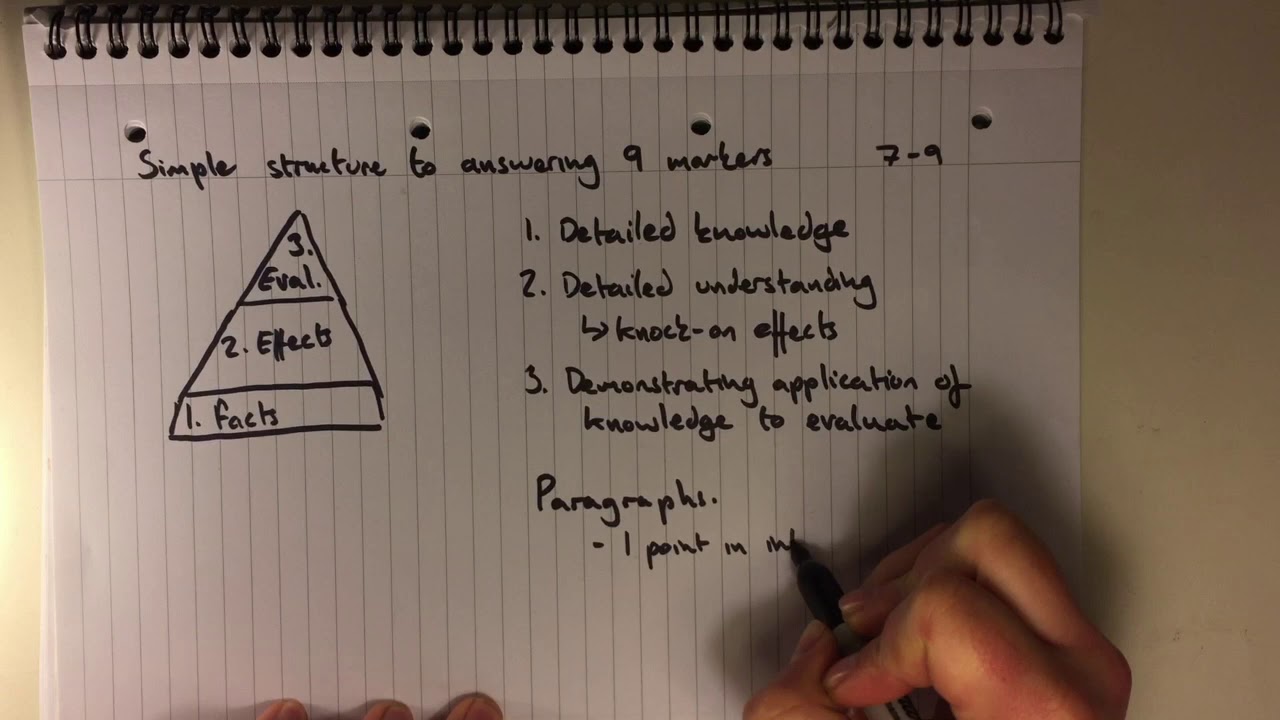 Simple structure to answering 9 markers 7-9
3.
Eval.
2. Effects
1. Facts
1. Detailed knowledge
2. Detailed understanding
↳ knock-on effects
3. Demonstrating application of
knowledge to evaluate
Paragraphs.
- 1 point in